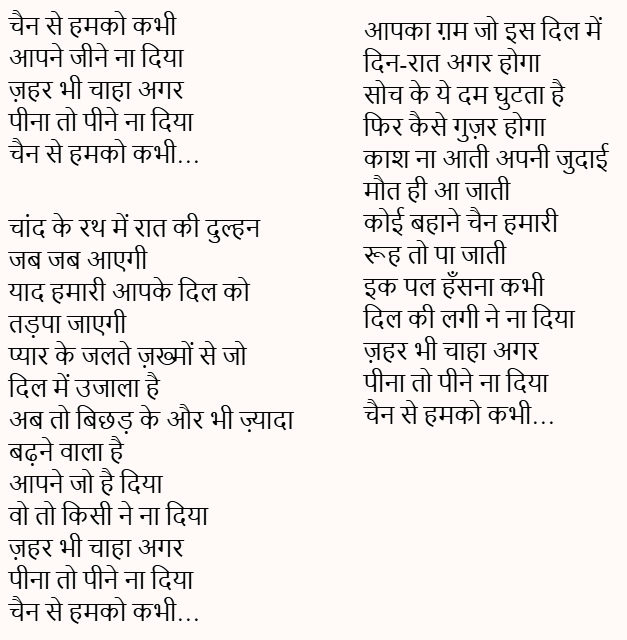 चैन से हमको कभी
आपने जीने ना दिया
ज़हर भी चाहा अगर
पीना तो पीने ना दिया
चैन से हमको कभी...
चांद के रथ में रात की दुल्हन
जब जब आएगी
याद हमारी आपके दिल को
तड़पा जाएगी
प्यार के जलते ज़ख्मों से जो
दिल में उजाला है
अब तो बिछड़ के और भी ज़्यादा
बढ़ने वाला है
आपने जो है दिया
वो तो किसी ने ना दिया
ज़हर भी चाहा अगर
पीना तो पीने ना दिया
चैन से हमको कभी...
आपका ग़म जो इस दिल में
दिन-रात अगर होगा
सोच के ये दम घुटता है
फिर कैसे गुज़र होगा
काश ना आती अपनी जुदाई
मौत ही आ जाती
कोई बहाने चैन हमारी
रूह तो पा जाती
इक पल हँसना कभी
दिल की लगी ने ना दिया
ज़हर भी चाहा अगर
पीना तो पीने ना दिया
चैन से हमको कभी...